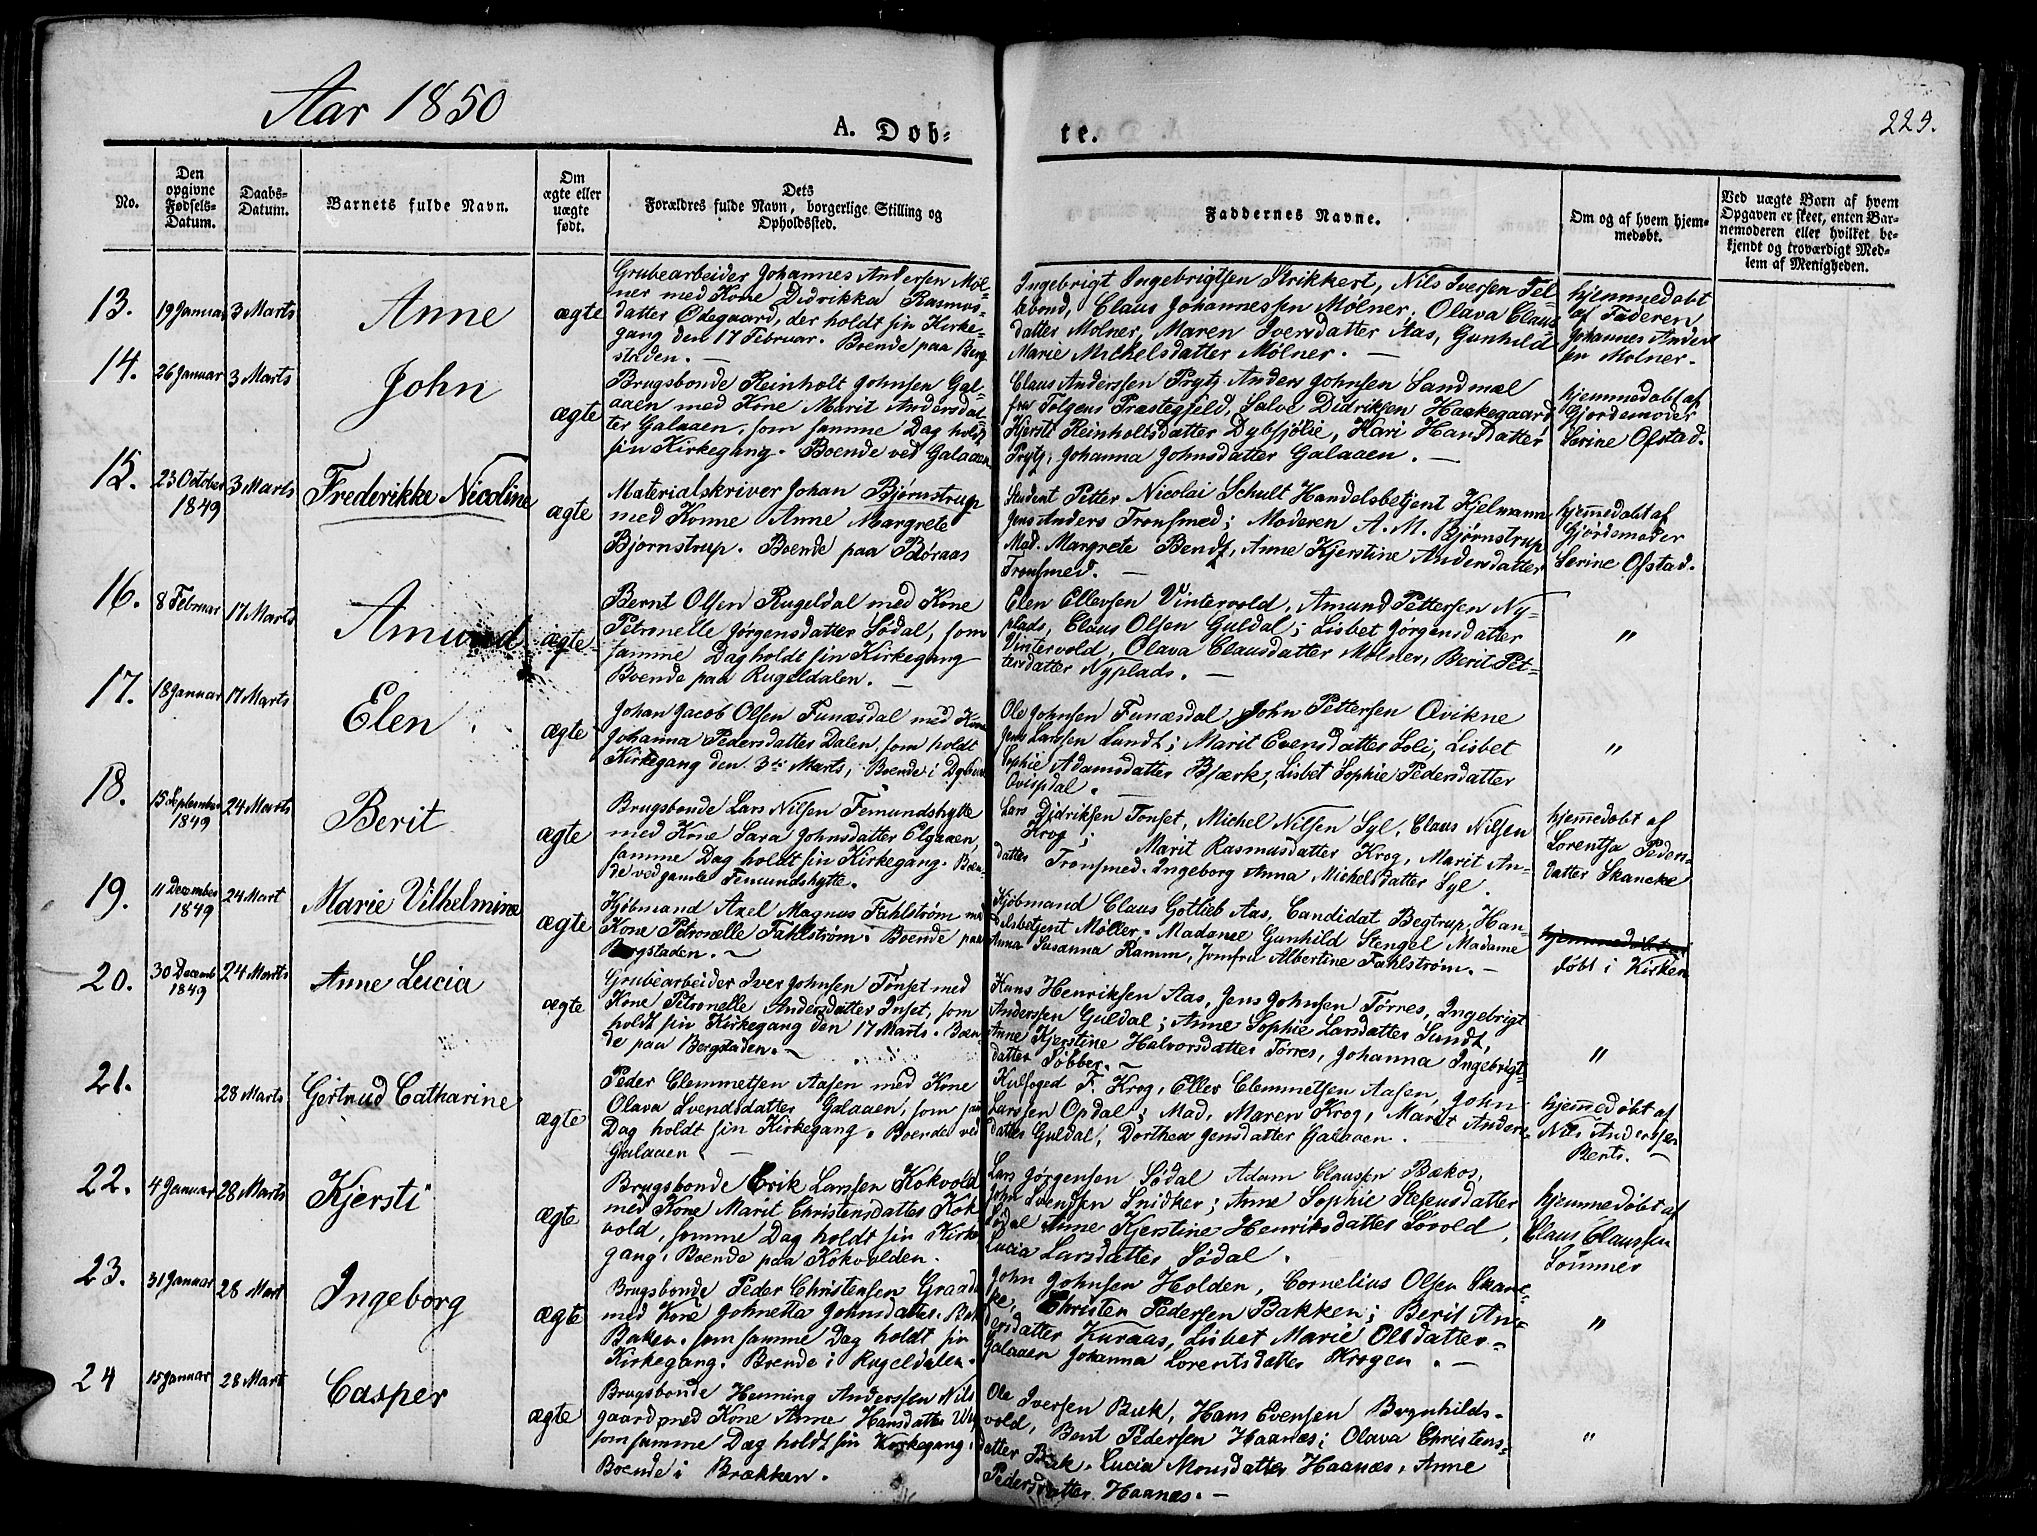 Aar 1850
A. Døb-
te.
223.
No.
Den
opgivne
Fødsels-
Datum.
Daabs-
Datum.
Barnets fulde Navn.
Om
ægte eller
uægte
født.
Dets
Forældres fulde Navn, borgerlige Stilling og
Opholdssted.
Faddernes Navne.
Om og af hvem hjem-
medøbt.
Ved uægte Børn af hvem
Opgaven er skeet, enten Bar-
nemoderen eller hvilket be-
kjendt og troværdigt Med-
lem af Menigheden.
13.
19 Januar
3 Marts
Anne
ægte
Grubearbeider Johannes Andersen Möl-
ner med Kone Didrikka Rasmus-
datter Ødegaard, der holdt sin Kirke-
gang den 17 Februar. Boende paa Berg
staden. —
Ingebrigt Ingebrigtsen Strikkert, Nils Iversen Fel-
Claus Johannessen Mølner, Olava Claus
datter Mølner, Maren Iversdatter Aas, Gunhild
Marie Michelsdatter Mølner. —
hjemmedøbt
af Faderen
Johannes Anders
sen Molner.
14.
26 Januar
3 Marts
John
ægte
Brugsbonde Reinholt Johnsen Gal-
aaen med Kone Marit Andersdat-
ter Galaaen, som samme Dag holdt
sin Kirkegang. Boende ved Galaaen
Claus Anderssen Prytz, Anders Johnsen Sandmæl
fra Tolgens Præstegjeld, Salve Didriksen Haakegaard,
Kjersti Reinholtsdatter Dybsjølie, Kari Hansdatter
Prytz, Johanna Johnsdatter Galaaen. —
hjemmedøbt af
Gjordemoder
Serine Ofstad.
15.
23 October
1849
3 Marts
Frederikke Nicoline
ægte
Materialskriver Johan Bjørnstrup
med Konne Anne Margrete
Bjørnstrup. Boende paa Røraas
Student Petter Nicolai Schult Handelsbetjent Kjelmann
Jens Anders Tronsmed; Moderen A. M. Bjørnstrup
Mad. Margrete Bendz, Anne Kjerstine Andersdatter
Tronsmed. —
hjemmedøbt af
Gjørdemoder
Serine Ofstad.
16.
8 Februar
17 Marts
Amund
ægte
Bernt Olsen Rugeldal med Kone
Petronelle Jørgensdatter Sødal, som
samme Dag holdt sin Kirkegang
Boende paa Rugeldalen. —
Elen Ellevsen Vintervold, Amund Pettersen Ny-
plads, Claus Olsen Guldal; Lisbet Jørgensdatter
Vintervold, Olava Clausdatter Mølner, Berit Pet-
tersdatter Nyplads. —
"
17.
18 Januar
17 Marts
Elen
ægte
Johan Jacob Olsen Funæsdal med Kone
Johanna Pedersdatter Dalen, som holdt
Kirkegang den 3die Marts, Boende i
Ole Johnsen Funæsdal, John Pettersen Qvikne
Jens Larssen Sundt; Marit Evensdatter Soli, Lisbet
Sophie Adamsdatter Bjærk, Lisbet Sophie Pedersdatter
"
18.
15 September
1849
24 Marts
Berit
ægte
Brugsbonde Lars Nilsen Femundshytte
med Kone Sara Johnsdatter Elgaaen,
samme Dag holdt sin Kirkegang. Boen-
de ved gamle Femundshytte.
Lars Didriksen Tonset, Michel Nilsen Syl, Claus Nilsen
Krog; Marit Rasmusdatter Krog, Marit An-
datter Tronsmed. Ingeborg Anna Michelsdatter Syl.
hjemmedøbt af
Lorentsa Peders-
datter Skancke
19.
11 December
1849
24 Mart
Marie Vilhelmine
ægte
Kjöbmand Axel Magnus Fahlstrøm med
Kone Petronelle Fahlstrøm. Boende paa
Bergstaden. ~
Kjøbmand Claus Gotlieb Aas, Candidat Begtrup, Han-
delsbetjent Møller. Madame Gunhild Stengel Madame
Anna Susanna Ramm, Jomfru Albertine Fahlstrøm. —
hjemmedøbt af
døbt i Kirken
20.
30 Decemb
1849
24 Marts
Anne Lucia
ægte
Grubearbeider Iver Johnsen Tönset med
Kone Petronelle Andersdatter Inset, som
holdt sin Kirkegang den 17 Marts. Boen-
de paa Bergstaden. ~
Hans Henriksen Aas, Jens Johnsen Tørres, Ingebrigt
Anderssen Guldal; Anne Sophie Larsdatter Sundt,
Anne Kjerstine Halvorsdatter Tørres, Johanna Ingebrigt-
datter Tøbber. ~
"
21.
28 Marts
Gertrud Catharine
ægte
Peder Clemmetsen Aasen med Kone
Olava Svendsdatter Galaaen, som
Dag holdt sin Kirkegang. Boende ved
Galaaen —
Kulfoged F. Krog, Eller Clemmetsen Aasen, John
Larssen Opdal; Mad. Maren Krog, Marit Anders-
datter Guldal, Dorthea Jensdatter Galaaen. —
hjemmedøbt af
Nils Anderssen
Bents. —
22.
4 Januar
28 Marts
Kjersti
ægte
Brugsbonde Erik Larssen Kokvold
med Kone Marit Christensdatter Kok
vold, somme Dag holdt sin Kirke
gang, Boende paa Kokvolden.
Lars Jørgensen Sødal Adam Clausen Bækos,
John Svendsen Snidker; Anne Sophie Stefensdatter
Sødal Anne Kjerstine Henriksdatter Sovold,
Lucia Larsdatter Sødal.
hjemmedøbt af
Claus Claussen
Sommer
23.
31 Januar
28 Mart
Ingeborg
ægte
Brugsbonde Peder Christensen Graade
med Kone Johnetta Johnsdatter
Baken, som samme Dag holdt sin
Kirkegang. Boende i Rugeldalen.
John Johnsen Holden, Cornelius Olsen Skanc-
ke, Christen Pedersen Bakken; Berit An-
dersdatter Kuraas, Lisbet Marie Olsdatter-
Galaaen Johanna Lorentsdatter Krogen. —
"
24
15 Januar
28 Mart
Casper
ægte
Brugsbonde Henning Anderssen Nils
gaard med Kone Anne Hansdatter
som samme Dag holdt sin Kirkegang.
Boende i Brækken.
Ole Iversen Bæk, Hans Evensen Brynhilds-
vold, Bent Pedersen Haanæs; Olava Christens-
datter Bæk. Lucia Monsdatter Haanæs, Anne
Pedersdatter Haanæs. —
"